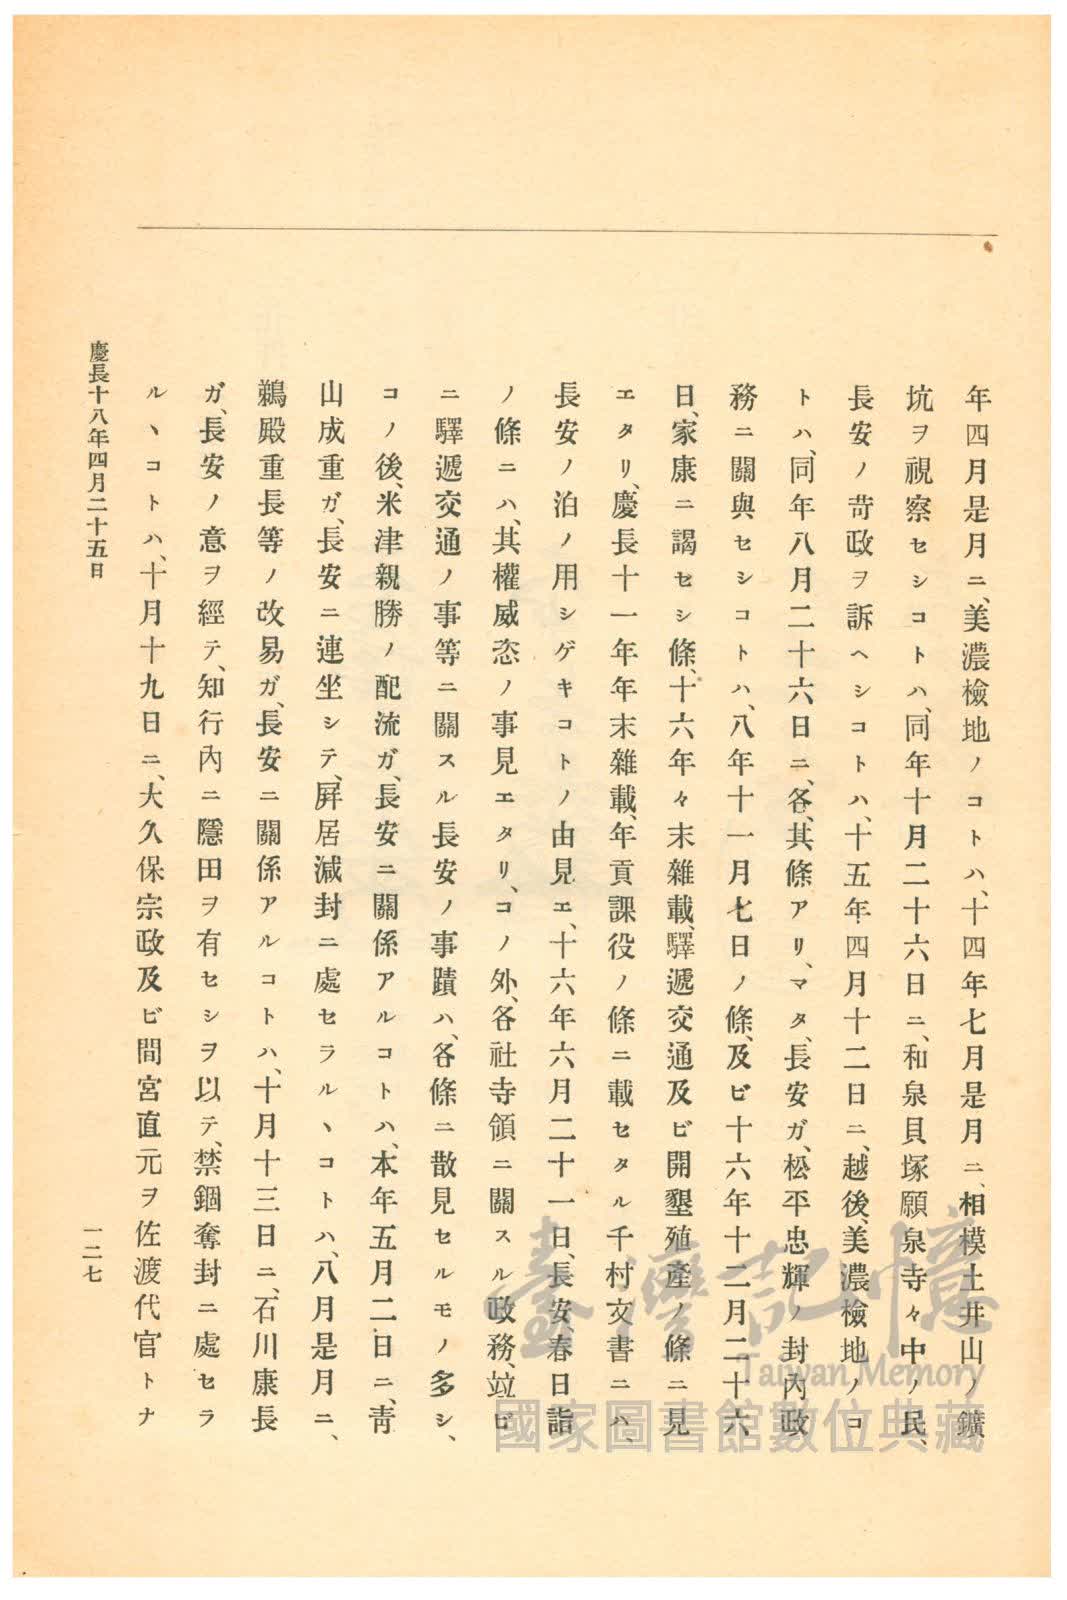 年四月是月ニ、美濃檢地ノコトハ、十四年七月是月ニ、相模土井山ノ鑛
坑ヲ視察セシコトハ、同年十月二十六日ニ、和泉貝塚願泉寺々中ノ民、
長安ノ苛政ヲ訴ヘシコトハ、十五年四月十二日ニ、越後、美濃檢地ノコ
トハ、同年八月二十六日ニ、各、其條アリ、マタ、長安ガ、松平忠輝ノ封內政
務ニ關與セシコトハ、八年十一月七日ノ條、及ビ十六年十二月二十六
日、家康ニ謁セシ條、十六年々末雜載、驛遞交通及ビ開墾殖產ノ條ニ見
エタリ、慶長十一年年末雜載、年貢課役ノ條ニ載セタル千村文書ニハ、
長安ノ泊ノ用シゲキコトノ由見エ、十六年六月二十一日、長安春日詣
ノ條ニハ、其權威恣ノ事見エタリ、コノ外、各社寺領ニ關スル政務、竝ビ
ニ驛遞交通ノ事等ニ關スル長安ノ事蹟ハ、各條ニ散見セルモノ多シ、
コノ後、米津親勝ノ配流ガ、長安ニ關係アルコトハ、本年五月二日ニ、靑
山成重ガ、長安ニ連坐シテ、屛居減封ニ處セラルヽコトハ、八月是月ニ、
鵜殿重長等ノ改易ガ、長安ニ關係アルコトハ、十月十三日ニ、石川康長
ガ、長安ノ意ヲ經テ、知行內ニ隱田ヲ有セシヲ以テ、禁錮奪封ニ處セラ
ルヽコトハ、十月十九日ニ、大久保宗政及ビ間宮直元ヲ佐渡代官トナ
慶長十八年四月二十五日
一二七
臺灣記憶
Taiwan Memory
國家圖書館數位典藏